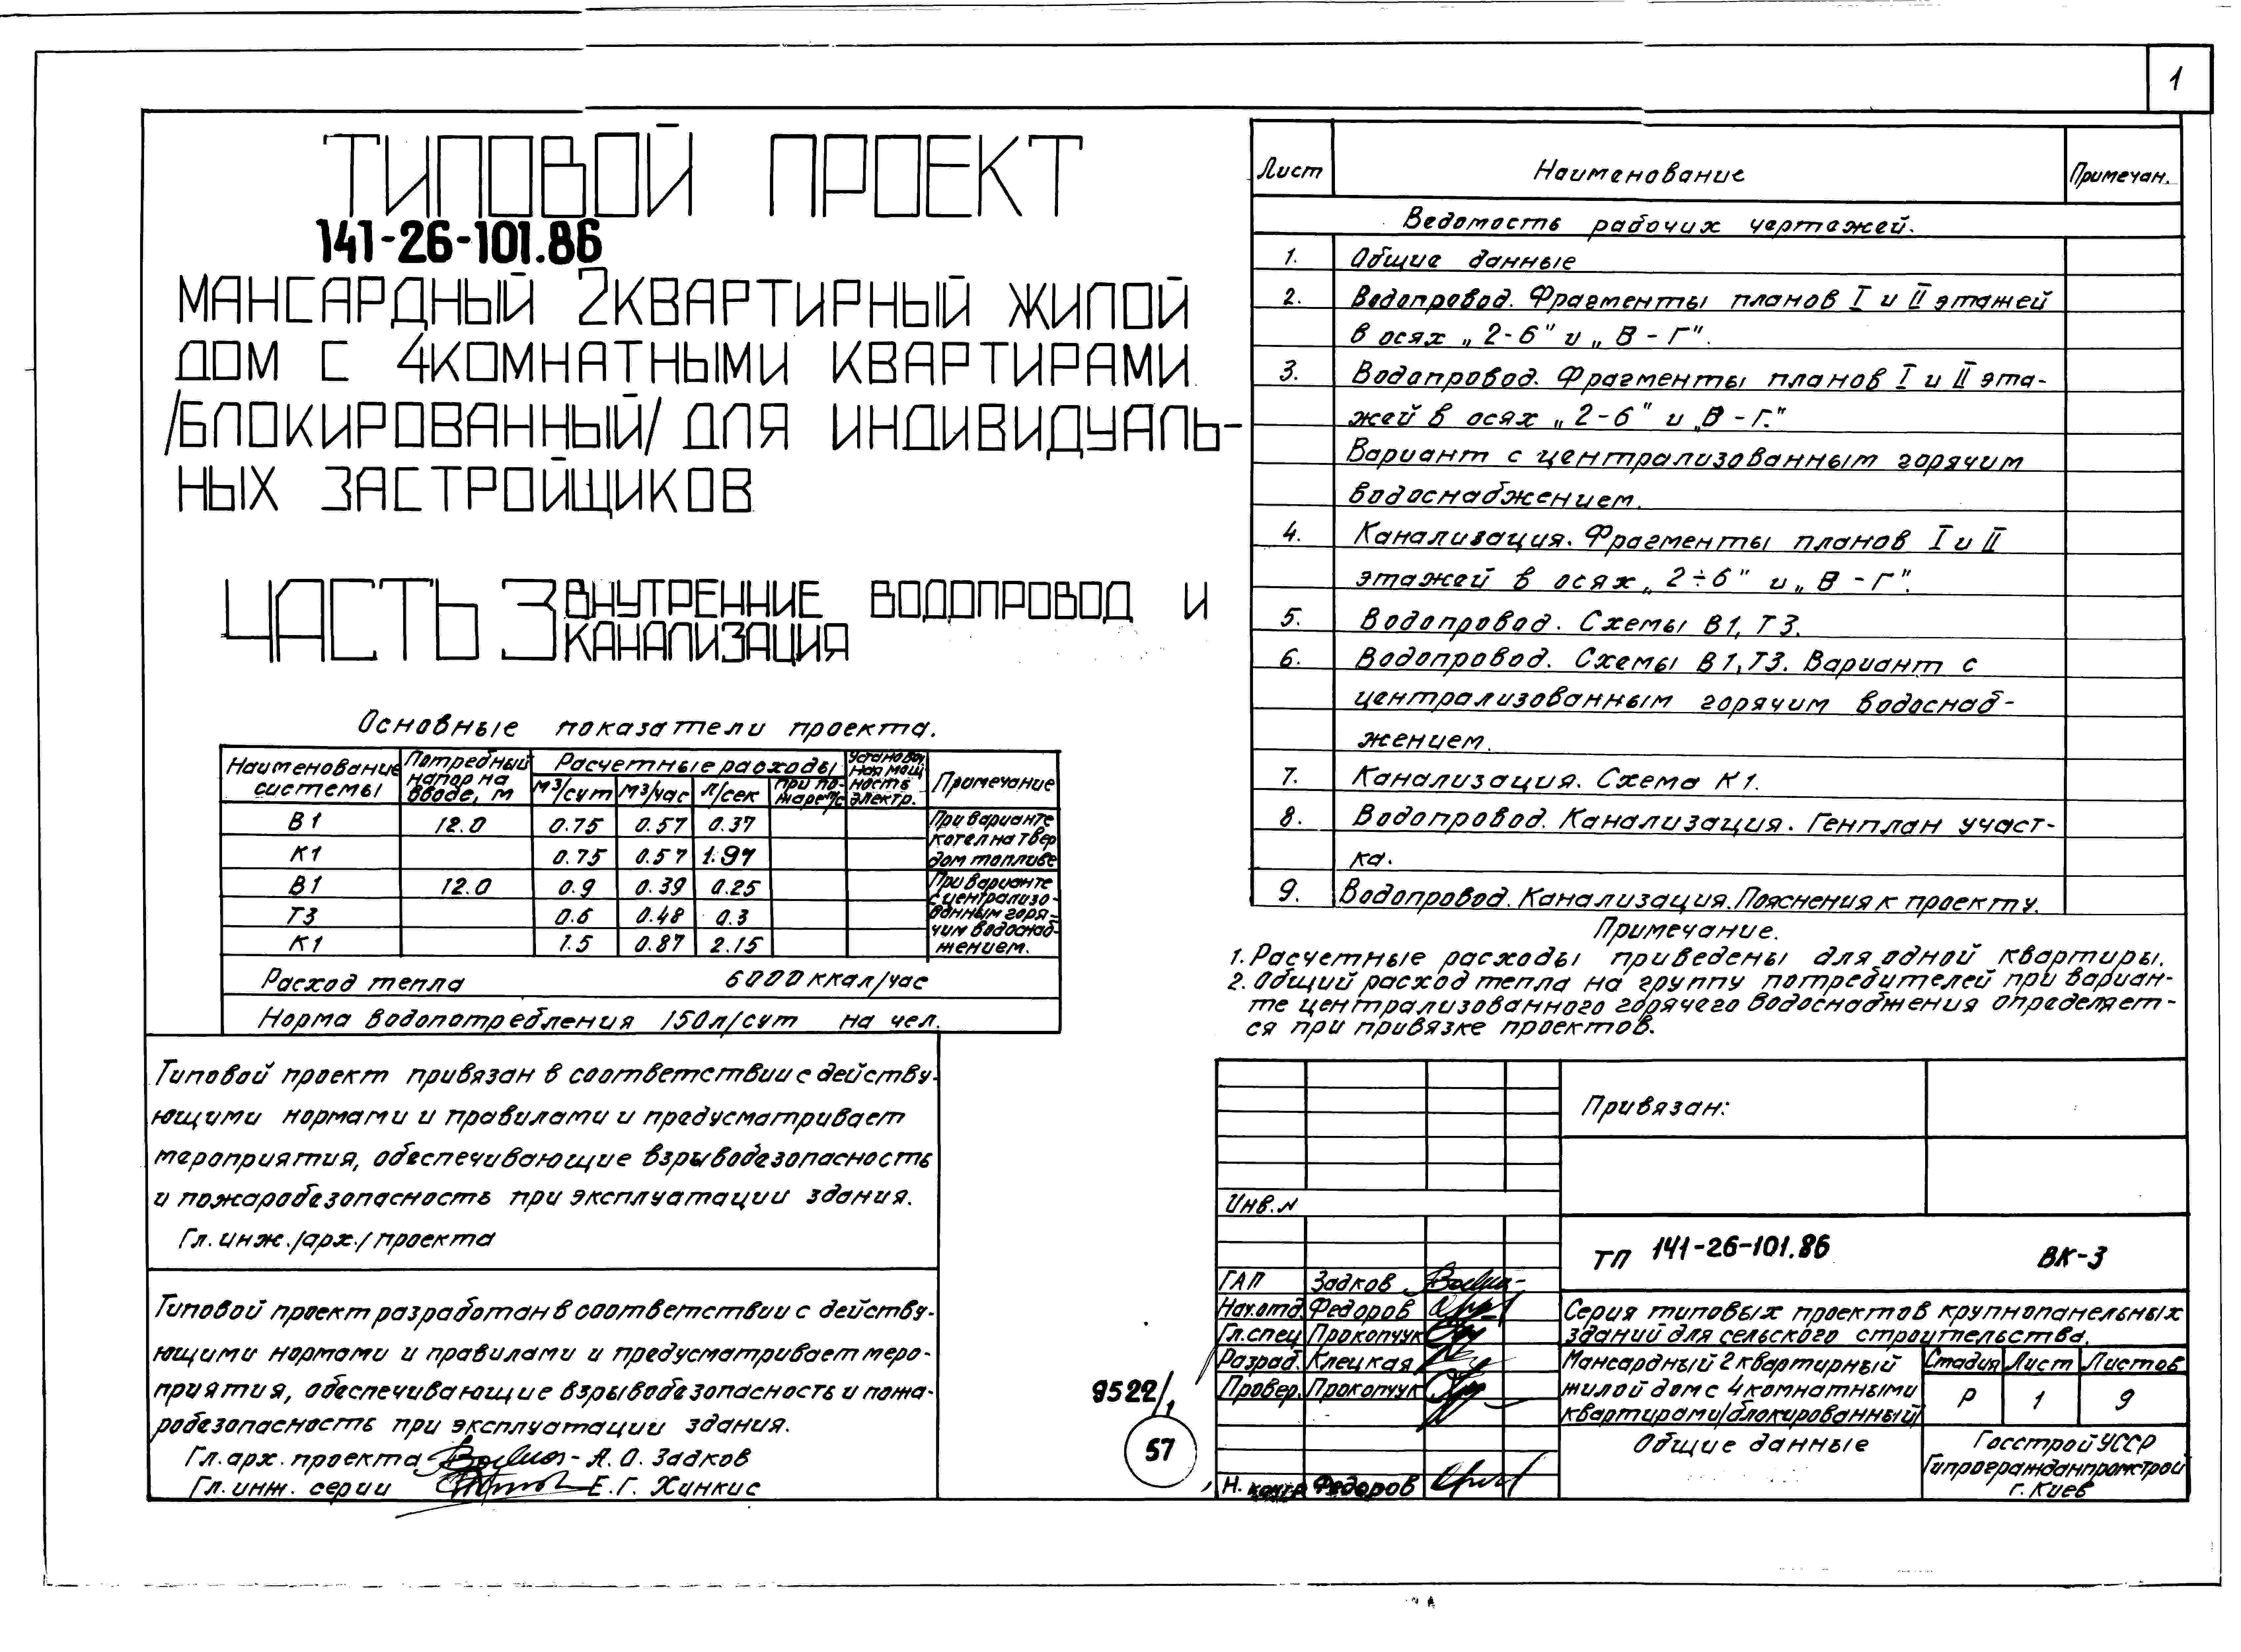 1
ТИПОВОЙ ПРОЕКТ
141-26-101.86
МАНСАРДНЫЙ 2КВАРТИРНЫЙ ЖИЛОЙ
ДОМ С 4КОМНАТНЫМИ КВАРТИРАМИ
/БЛОКИРОВАННЫЙ/ ДЛЯ ИНДИВИДУАЛЬ-
НЫХ ЗАСТРОЙЩИКОВ
ЧАСТЬ 3 ВНУТРЕННИЕ ВОДОПРОВОД И
КАНАЛИЗАЦИЯ
Основные показатели проекта.
Наименование системы Потребный напор на вводе, м Расчетные расходы Установоч ная мощ ность электр. Примечание
м³/сут м³/час л/сек при по-жаре л/с
В1 12.0 0.75 0.57 0.37 При варианте
К1 0.75 0.57 1.97 котел на твер дом топливе
В1 12.0 0.9 0.39 0.25 При варианте
Т3 0.6 0.48 0.3 с централизо-ванным горя-
К1 1.5 0.87 2.15 чим водоснаб-жением.
Расход тепла 6000 ккал/час
Норма водопотребления 150л/сут на чел.
Типовой проект привязан в соответствии с действу-
ющими нормами и правилами и предусматривает
мероприятия, обеспечивающие взрывобезопасность
и пожаробезопасность при эксплуатации здания.
Гл. инж./арх./ проекта
Типовой проект разработан в соответствии с действу-
ющими нормами и правилами и предусматривает меро-
приятия, обеспечивающие взрывобезопасность и пожа-
робезопасность при эксплуатации здания.
Гл. арх. проекта А. О. Задков
Гл. инж. серии Е. Г. Хинкис
Лист Наименование Примечан.
Ведомость рабочих чертежей.
1. Общие данные
2. Водопровод. Фрагменты планов I и II этажей
в осях „2-6" и „В-Г".
3. Водопровод. Фрагменты планов I и II эта-
жей в осях „2-6" и „В-Г."
Вариант с централизованным горячим
водоснабжением.
4. Канализация. Фрагменты планов I и II
этажей в осях „2÷6" и „В-Г".
5. Водопровод. Схемы В1, Т3.
6. Водопровод. Схемы В1, Т3. Вариант с
централизованным горячим водоснаб-
жением.
7. Канализация. Схема К1.
8. Водопровод. Канализация. Генплан участ-
ка.
9. Водопровод. Канализация. Пояснения к проекту.
Примечание.
1. Расчетные расходы приведены для одной квартиры.
2. Общий расход тепла на группу потребителей при вариан-
те централизованного горячего водоснабжения определяет-
ся при привязке проектов.
Привязан:
Инв. N
ТП 141-26-101.86 ВК-3
ГАП Задков
Нач.отд. Федоров
Гл.спец Прокопчук
Разраб. Клецкая
Провер. Прокопчук
Н. контр Федоров
Серия типовых проектов крупнопанельных
зданий для сельского строительства.
Мансардный 2квартирный
жилой дом с 4комнатными
квартирами/блокированный/
Стадия Лист Листов
Р 1 9
Общие данные
Госстрой УССР
Гипрогражданпромстрой
г. Киев
9522/1
57